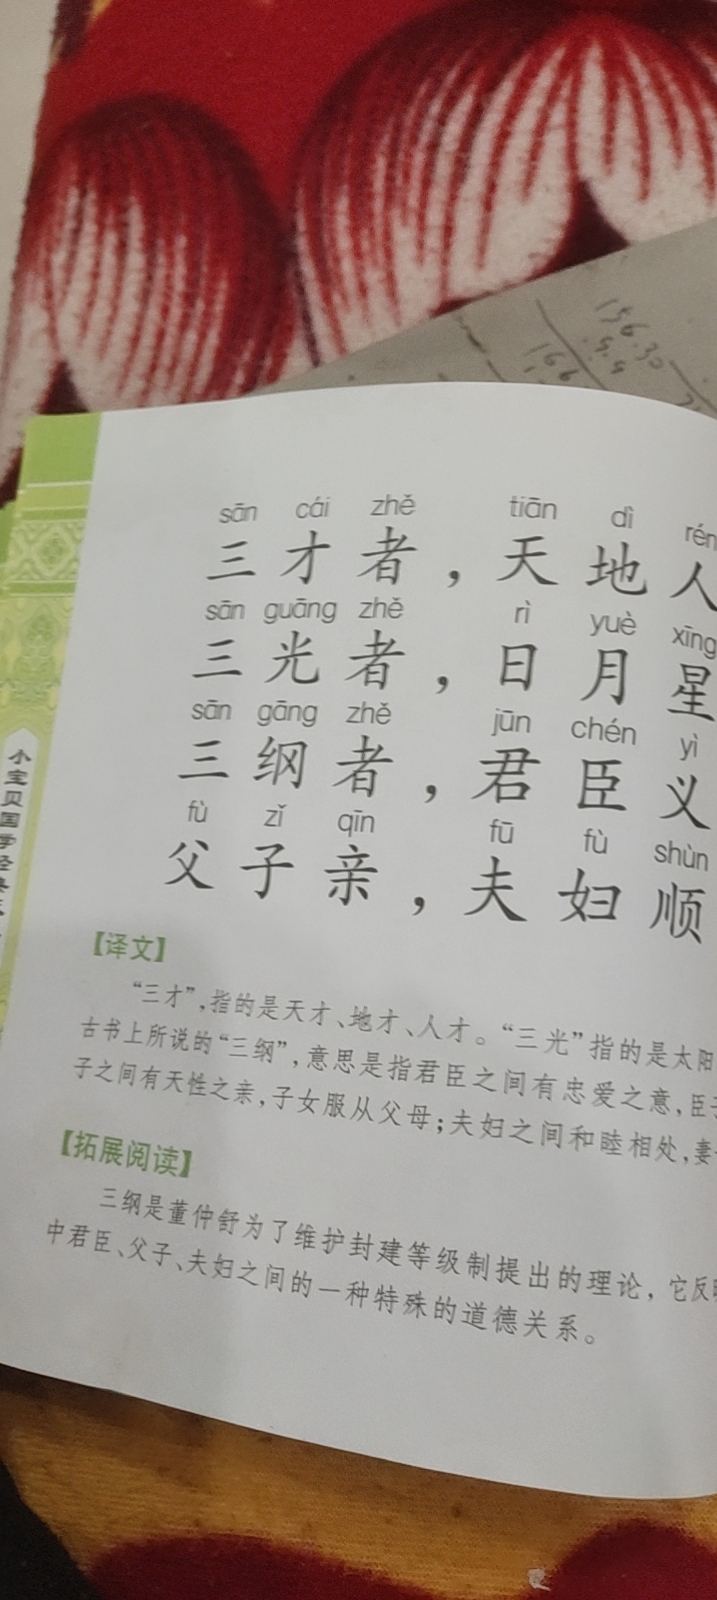 156.30
sān cái zhě tiān dì rén
三才者，天地人
sān guāng zhě rì yuè xīng
三光者，日月星
sān gāng zhě jūn chén yì
三纲者，君臣义
fù zǐ qīn fū fù shùn
父子亲，夫妇顺
【译文】
“三才”，指的是天才、地才、人才。“三光”指的是太阳
古书上所说的“三纲”，意思是指君臣之间有忠爱之意，臣
子之间有天性之亲，子女服从父母；夫妇之间和睦相处，妻
【拓展阅读】
三纲是董仲舒为了维护封建等级制提出的理论，它反
中君臣、父子、夫妇之间的一种特殊的道德关系。
小宝贝国学经典